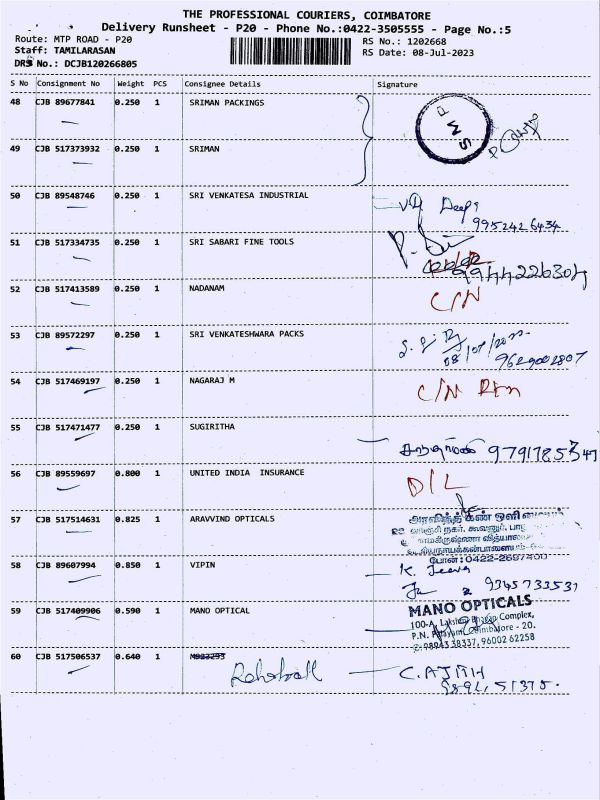 THE PROFESSIONAL COURIERS, COIMBATORE
Delivery Runsheet - P20 - Phone No.:0422-3505555 - Page No.:5
Route: MTP ROAD - P20
RS No.: 1202668
Staff: TAMILARASAN
RS Date: 08-Jul-2023
DRS No.: DCJB120266805
S No Consignment No Weight PCS Consignee Details Signature
48 CJB 89677841 0.250 1 SRIMAN PACKINGS
SMP
49 CJB 517373932 0.250 1 SRIMAN
50 CJB 89548746 0.250 1 SRI VENKATESA INDUSTRIAL
Deepi
9952426434
51 CJB 517334735 0.250 1 SRI SABARI FINE TOOLS
9944226304
52 CJB 517413589 0.250 1 NADANAM C/N
53 CJB 89572297 0.250 1 SRI VENKATESHWARA PACKS
9629002807
54 CJB 517469197 0.250 1 NAGARAJ M C/N
55 CJB 517471477 0.250 1 SUGIRITHA
56 CJB 89559697 0.800 1 UNITED INDIA INSURANCE D/L
57 CJB 517514631 0.825 1 ARAVVIND OPTICALS
அரவிந்த் கண் ஒளி
58 CJB 89607994 0.850 1 VIPIN K. Jeeva
9345733531
59 CJB 517409906 0.590 1 MANO OPTICAL
MANO OPTICALS
100-A, Complex,
P.N. Coimbatore - 20.
98943 38337, 96002 62258
60 CJB 517506537 0.640 1 C. AJITH